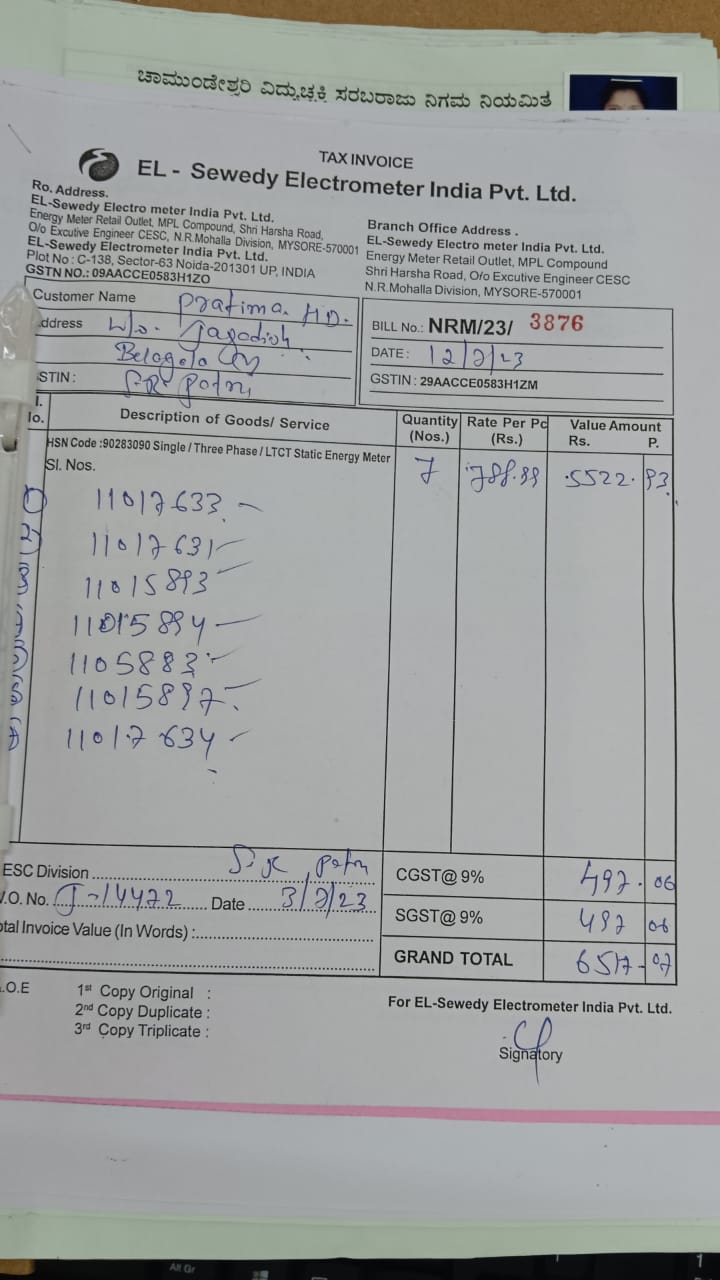 ಚಾಮುಂಡೇಶ್ವರಿ ವಿದ್ಯುಚ್ಛಕ್ತಿ ಸರಬರಾಜು ನಿಗಮ ನಿಯಮಿತ
TAX INVOICE
EL - Sewedy Electrometer India Pvt. Ltd.
Ro. Address.
EL-Sewedy Electro meter India Pvt. Ltd.
Energy Meter Retail Outlet, MPL Compound, Shri Harsha Road,
O/o Excutive Engineer CESC, N.R.Mohalla Division, MYSORE-570001
EL-Sewedy Electrometer India Pvt. Ltd.
Plot No : C-138, Sector-63 Noida-201301 UP, INDIA
GSTN NO.: 09AACCE0583H1ZO
Branch Office Address .
EL-Sewedy Electro meter India Pvt. Ltd.
Energy Meter Retail Outlet, MPL Compound
Shri Harsha Road, O/o Excutive Engineer CESC
N.R.Mohalla Division, MYSORE-570001
Customer Name Pratima. HD.
ddress W/o. Jagadish
Belagola
STIN :
BILL No.: NRM/23/ 3876
DATE : 12/7/23
GSTIN : 29AACCE0583H1ZM
l.
lo. Description of Goods/ Service Quantity (Nos.) Rate Per Pc (Rs.) Value Amount Rs. P.
HSN Code :90283090 Single / Three Phase / LTCT Static Energy Meter
Sl. Nos. 7 788.99 5522.93
1) 11017633
2) 11017631
3) 11015893
4) 11015894
5) 1105883
6) 11015897
7) 11017634
ESC Division
V.O. No. J-14472 Date 3/7/23
otal Invoice Value (In Words) :
CGST@ 9% 497.06
SGST@ 9% 497 06
GRAND TOTAL 6517-07
.O.E
1st Copy Original :
2nd Copy Duplicate :
3rd Copy Triplicate :
For EL-Sewedy Electrometer India Pvt. Ltd.
Signatory
Alt Gr
1